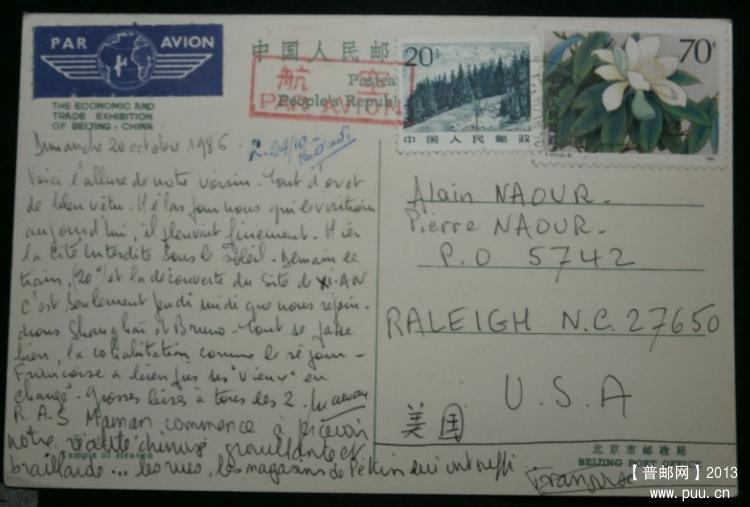 PAR AVION
THE ECONOMIC AND
TRADE EXHIBITION
OF BEIJING · CHINA
中国人民邮
Postca
People's Republ
航空
PAR AVION
20分
中国人民邮政
70分
Dimanche 20 octobre 1986
Voici l'allure de notre voisin. Tout d'or et
de bleu vêtu. Hélas pour nous qui le visitions
aujourd'hui, il pleuvait finement. Hier
la Cité Interdite sous le soleil. Demain le
train, (20h) et la découverte du site de XI-AN
c'est seulement jeudi midi que nous rejoin-
drons Shanghaï et Bruno. Tout se passe
bien, la cohabitation comme le séjour.
Françoise a bien pris ses "vieux" en
charge. Grosses bises à tous les 2. Maman
R.A.S Maman commence à percevoir
notre réalité chinoise grouillante et
braillarde... les rues, les magasins de Pékin lui ont suffi
Françoise
Temple of Heaven
Alain NAOUR.
Pierre NAOUR.
P.O 5742
RALEIGH N.C. 27650
U.S.A
美国
北京市邮政局
BEIJING POST
【普邮网】2013
www.puu.cn